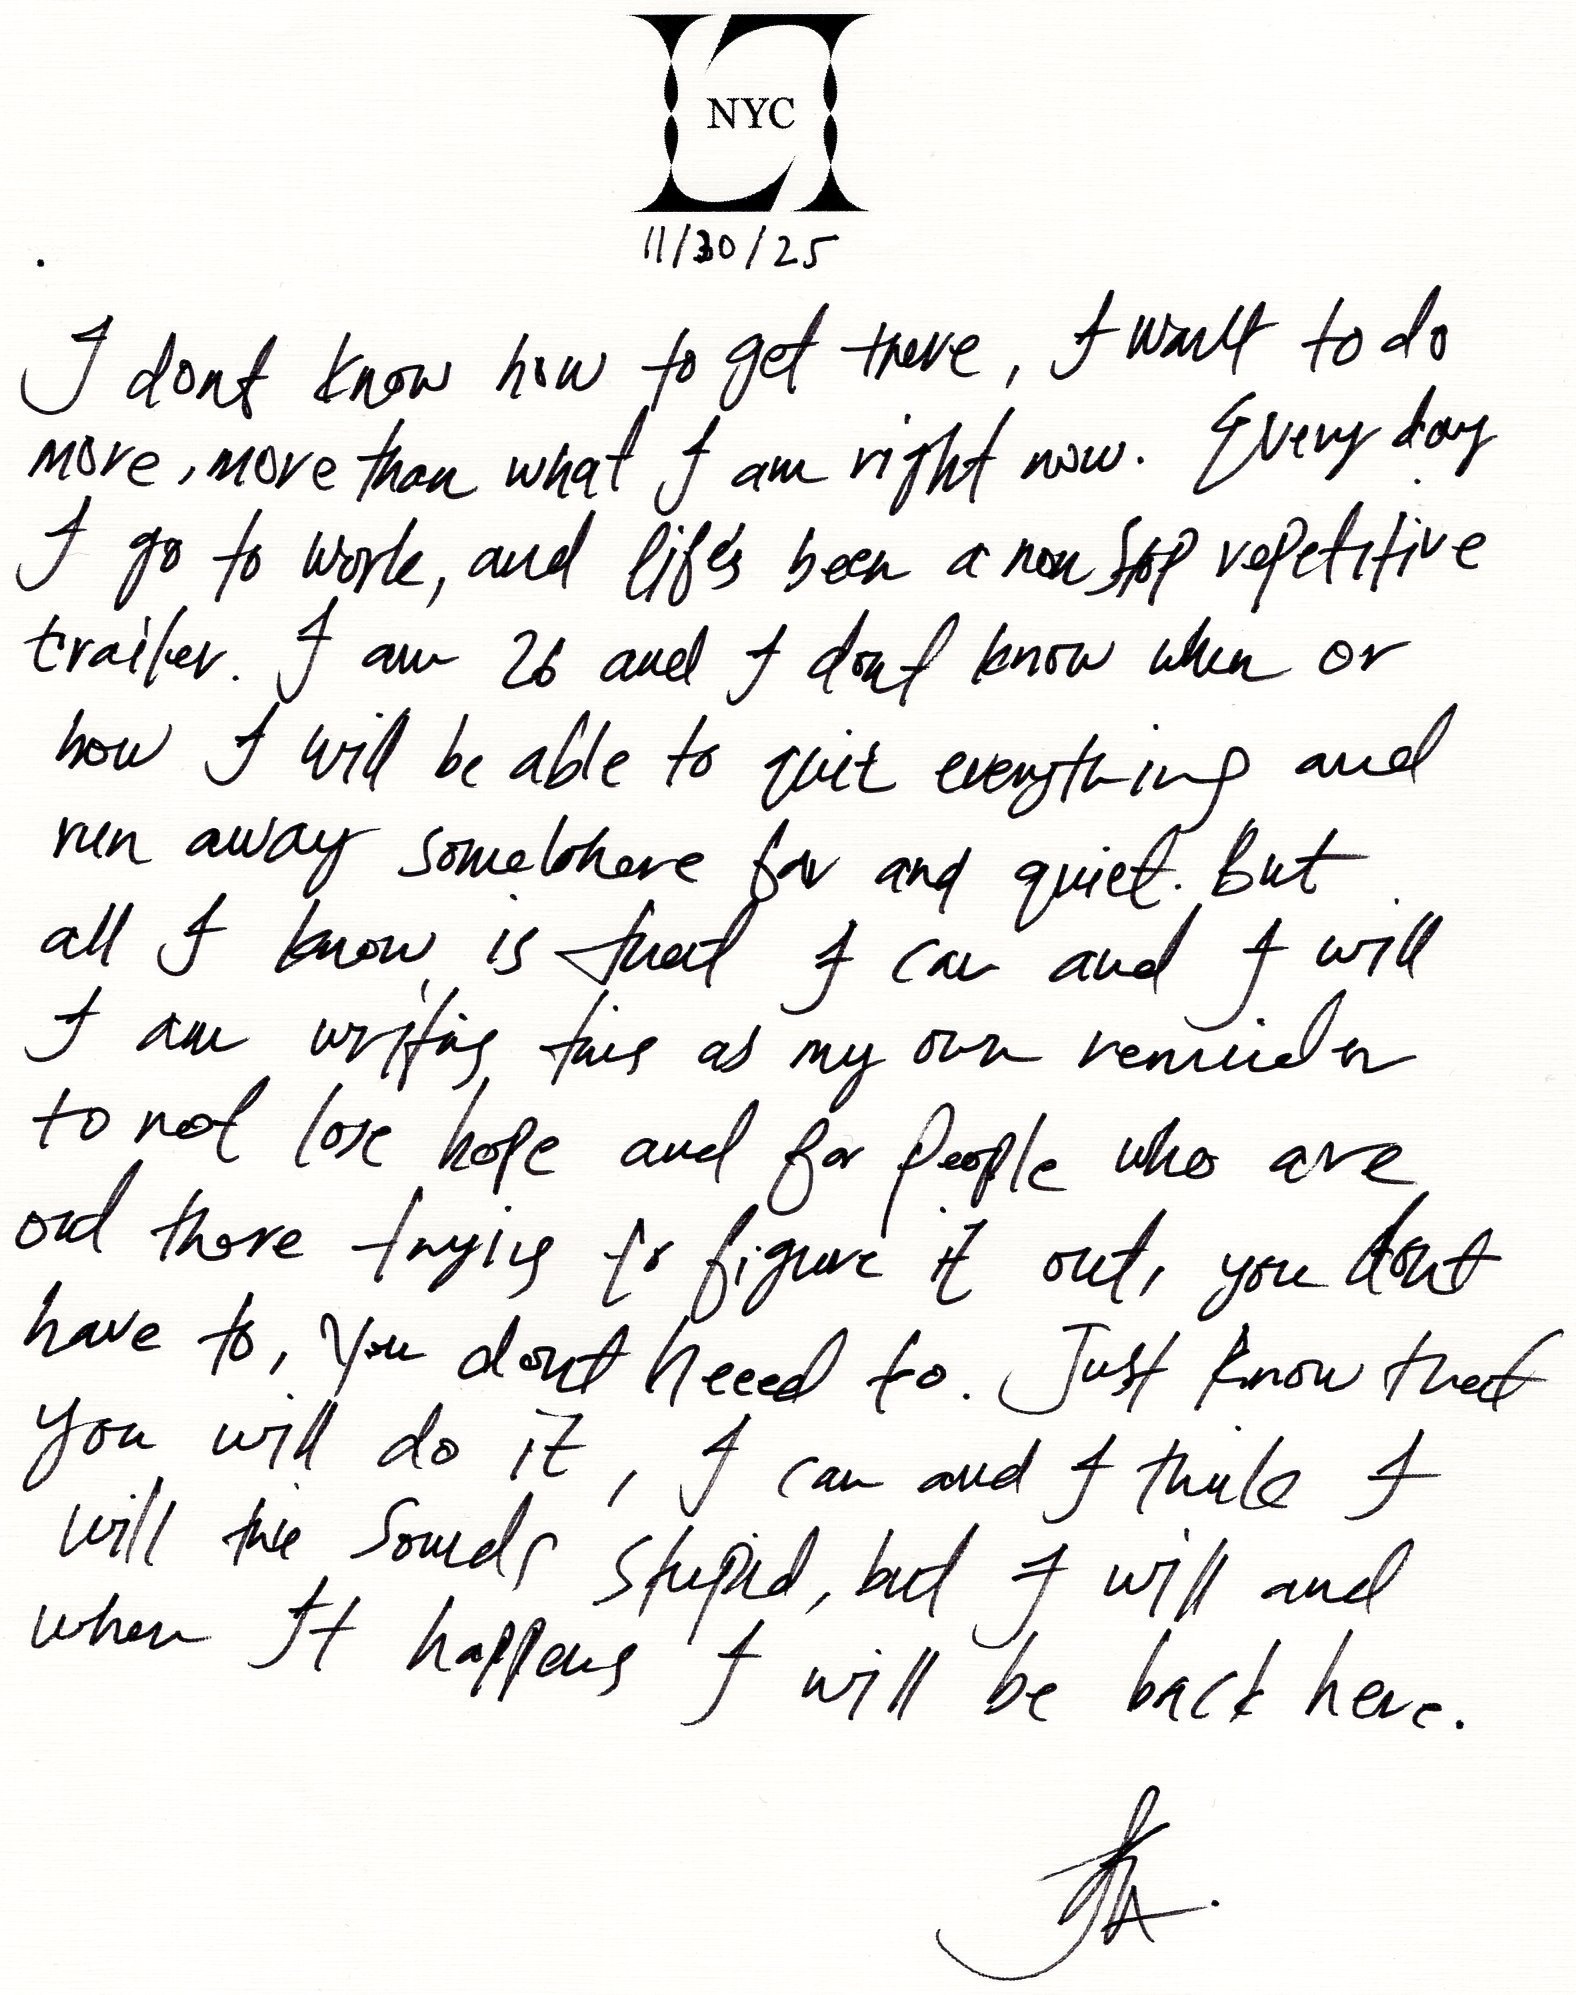 NYC
11/30/25
I dont know how to get there, I want to do
more, more than what I am right now. Every day
I go to work, and life's been a non stop repetitive
trailer. I am 26 and I dont know when or
how I will be able to quit everything and
run away somewhere far and quiet. But
all I know is that I can and I will
I am writing this as my own reminder
to not lose hope and for people who are
out there trying to figure it out, you dont
have to, you dont heeed to. Just know that
you will do it, I can and I think I
will this sounds stupid, but I will and
when It happens I will be back here.